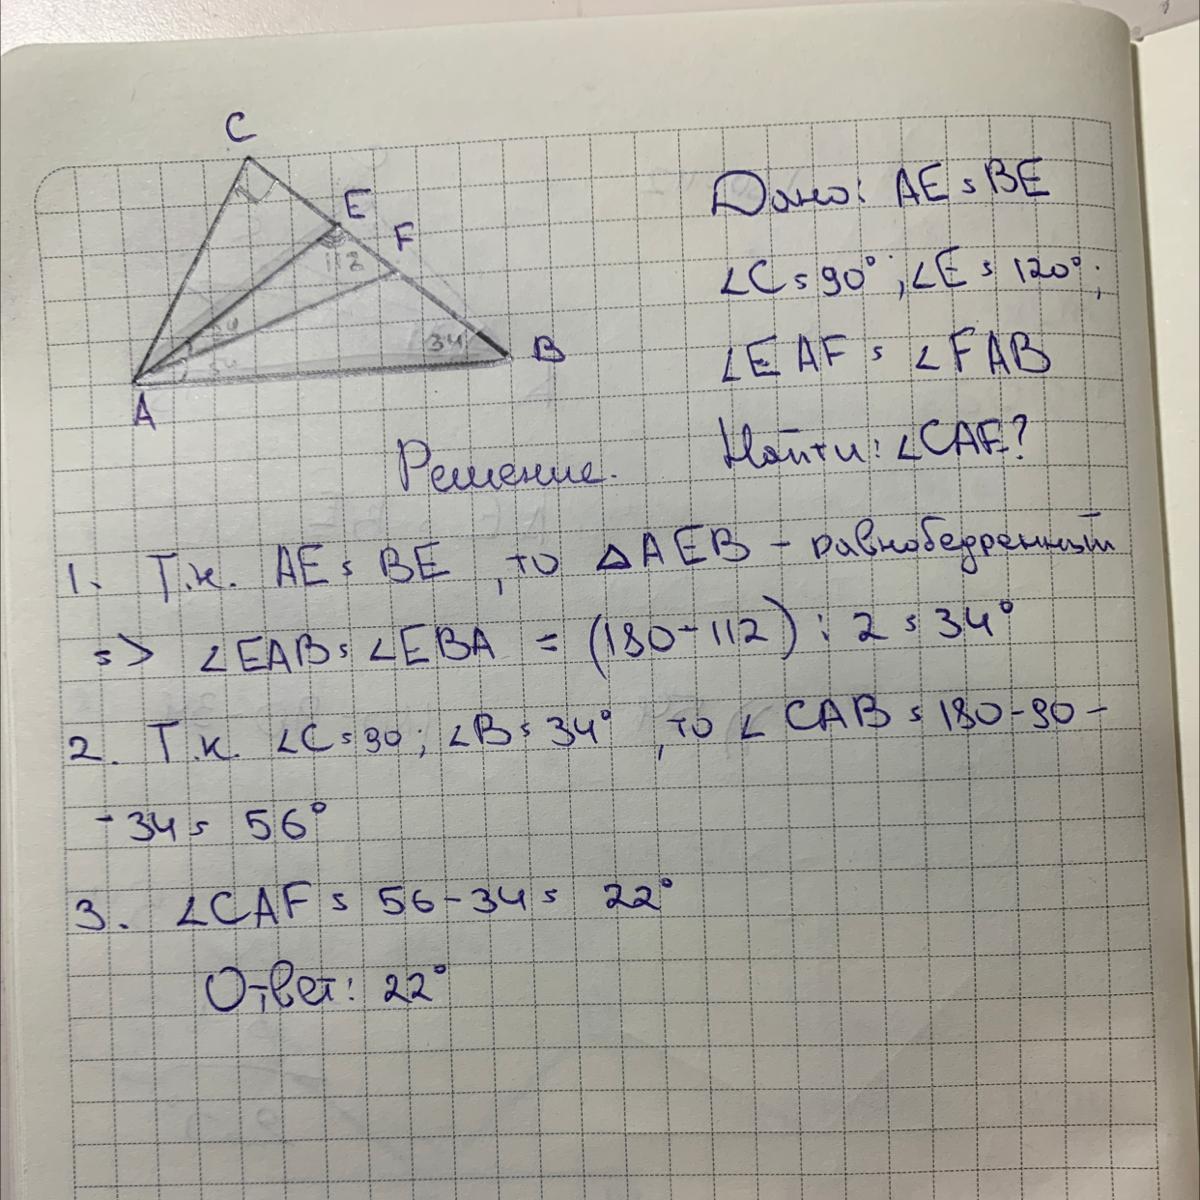 C
E
F
112
34
34
34
B
A
Дано: AE = BE
∠C = 90°; ∠E = 120°;
∠EAF = ∠FAB
Найти: ∠CAE?
Решение.
1. Т.к. AE = BE, то △AEB - равнобедренный
=> ∠EAB = ∠EBA = (180-112) : 2 = 34°
2. Т.к. ∠C = 90; ∠B = 34°, то ∠CAB = 180-90-
-34 = 56°
3. ∠CAF = 56-34 = 22°
Ответ: 22°